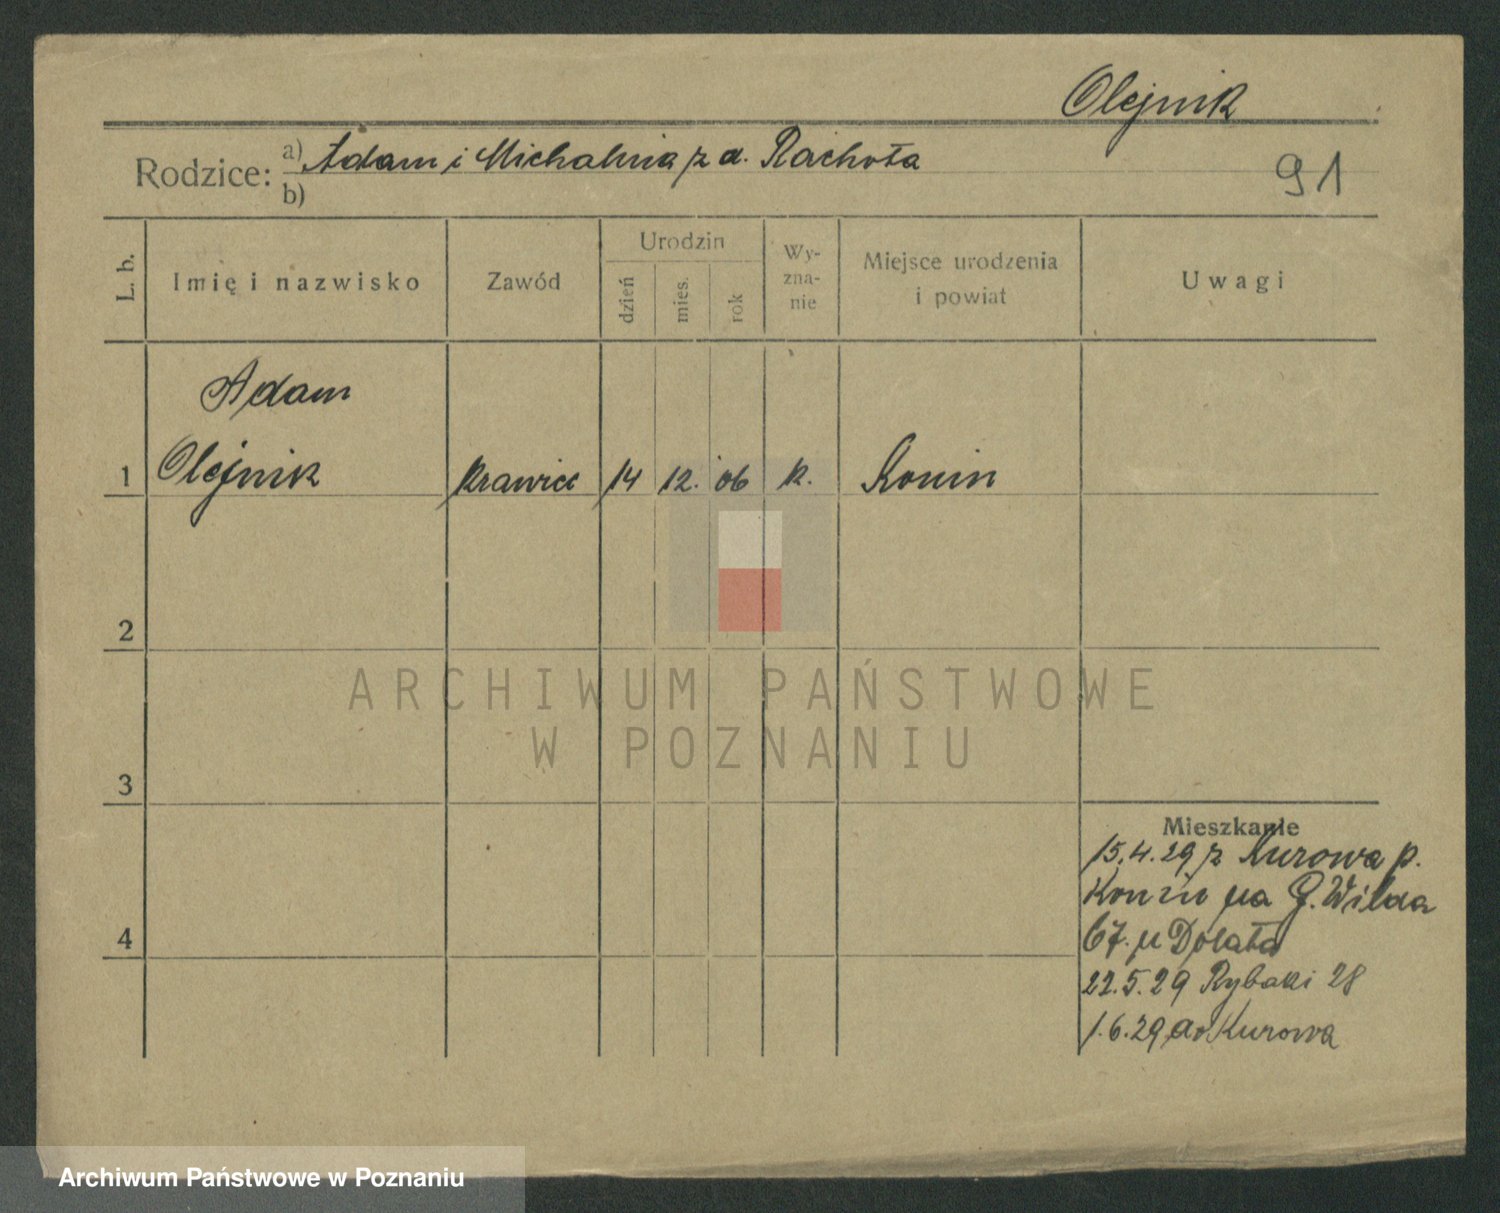 Olejnik
Rodzice: a) Adam i Michalina z d. Rachota
b)
91
L. b.
Imię i nazwisko
Zawód
Urodzin
dzień
mies.
rok
Wy-
zna-
nie
Miejsce urodzenia
i powiat
Uwagi
Adam
1 Olejnik krawiec 14 12. 06 k. Konin
2
3
4
Mieszkanie
15.4.29 z Kurowa p.
Konin na G. Wilda
67. u Dolata
22.5.29 Rybaki 28
1.6.29 do Kurowa
ARCHIWUM PAŃSTWOWE
W POZNANIU
Archiwum Państwowe w Poznaniu